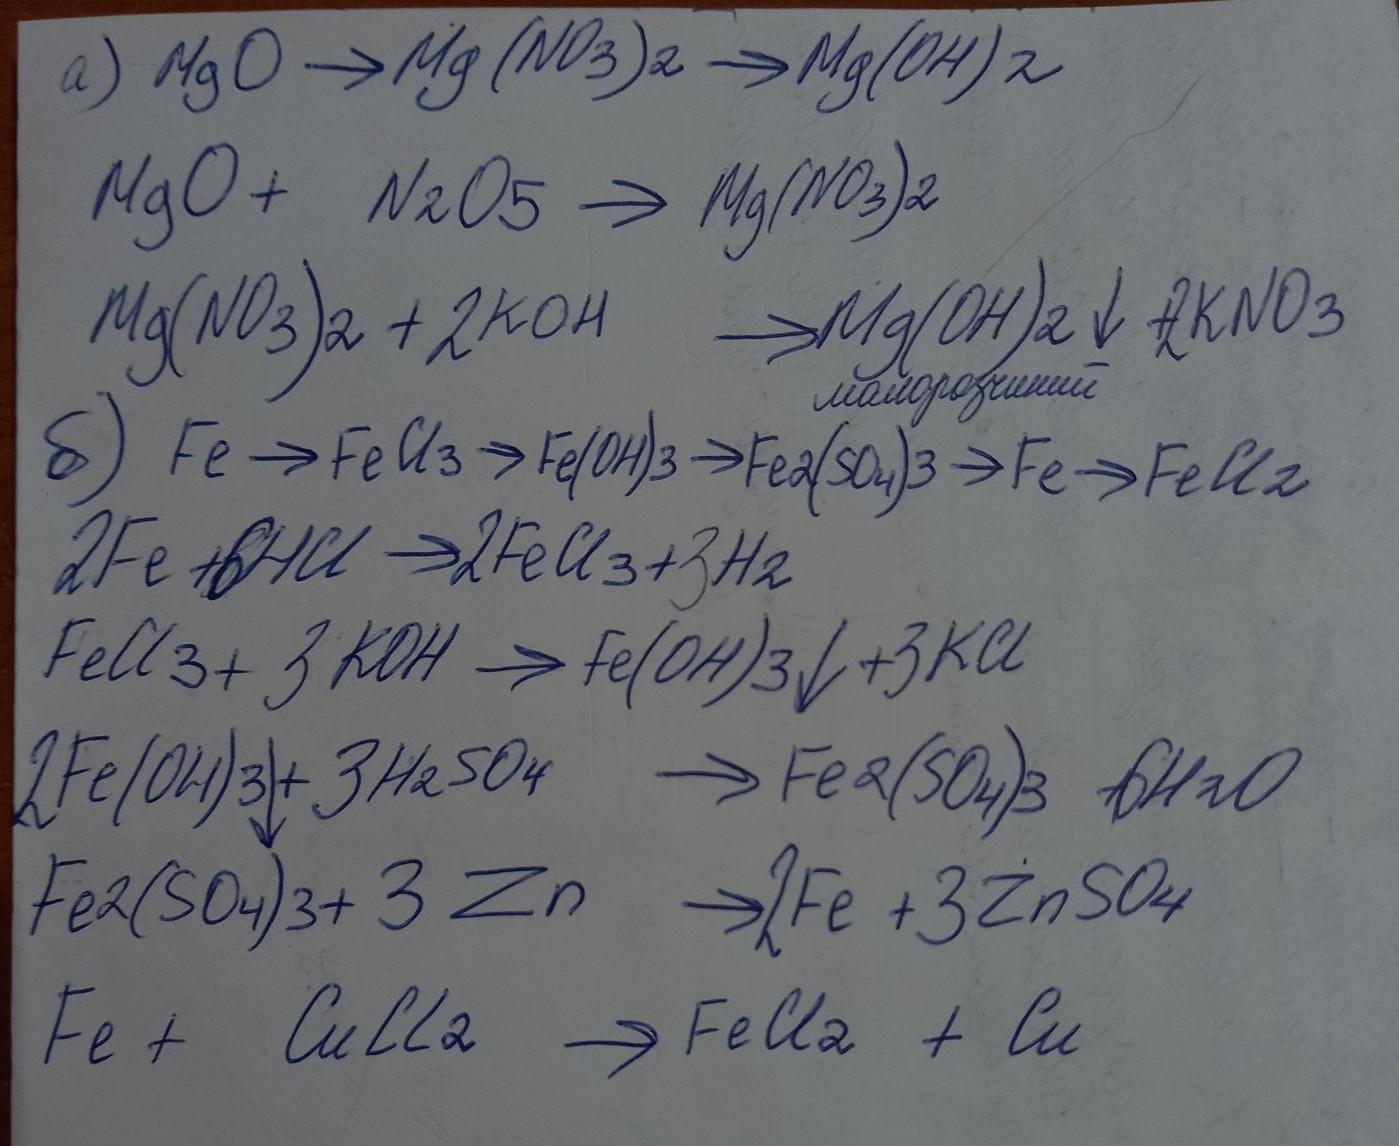 а) MgO → Mg(NO3)2 → Mg(OH)2
MgO + N2O5 → Mg(NO3)2
Mg(NO3)2 + 2KOH → Mg(OH)2 ↓ + 2KNO3
малорозчинний
б) Fe → FeCl3 → Fe(OH)3 → Fe2(SO4)3 → Fe → FeCl2
2Fe + 6HCl → 2FeCl3 + 3H2
FeCl3 + 3KOH → Fe(OH)3 ↓ + 3KCl
2Fe(OH)3 ↓ + 3H2SO4 → Fe2(SO4)3 + 6H2O
Fe2(SO4)3 + 3Zn → 2Fe + 3ZnSO4
Fe + CuCl2 → FeCl2 + Cu